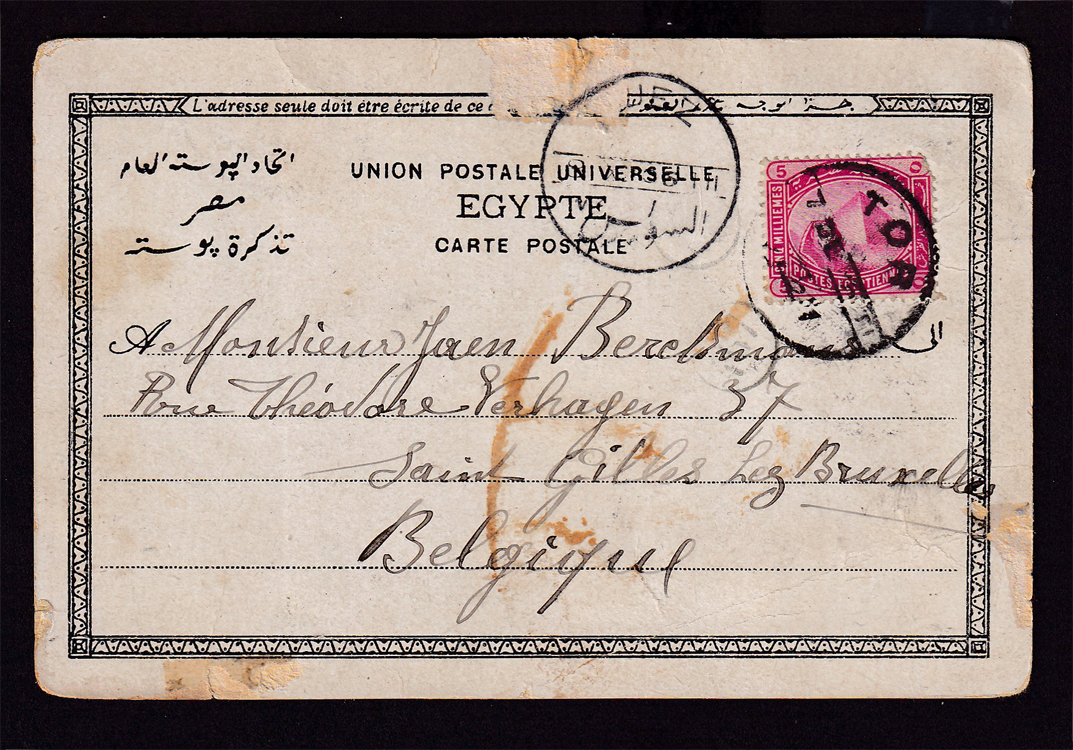 L'adresse seule doit être écrite de ce
اتحاد البوسته العام
UNION POSTALE UNIVERSELLE
مصر
EGYPTE
تذكرة پوسته
CARTE POSTALE
السويس
5
CINQ MILLIEMES
POSTES EGYPTIENNES
TOR
A Monsieur Jaen
الى
Rue Théodore Verhagen 37
Saint Gilles Lez Bruxelles
Belgique